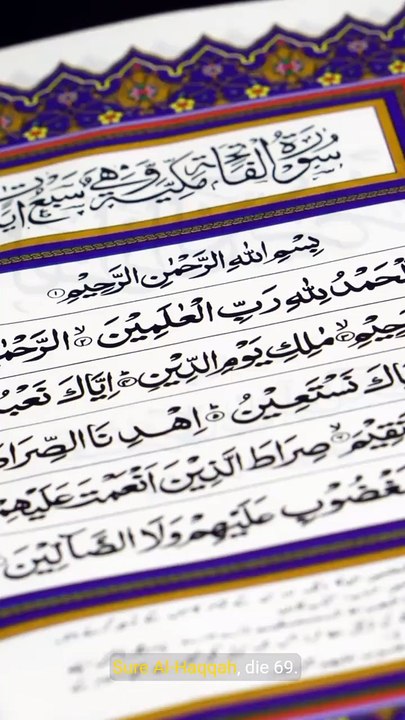 سُوْرَةُ الْفَاتِحَةِ مَكِّيَّةٌ وَّهِيَ سَبْعُ اٰيَاتٍ
بِسْمِ اللهِ الرَّحْمٰنِ الرَّحِيْمِ ۝١
لْحَمْدُ لِلّٰهِ رَبِّ الْعٰلَمِيْنَ ۝٢ الرَّحْمٰ
حِيْمِ ۝٣ مٰلِكِ يَوْمِ الدِّيْنِ ۝٤ اِيَّاكَ نَعْبُ
اكَ نَسْتَعِيْنُ ۝٥ اِهْدِنَا الصِّرَاطَ
تَقِيْمَ ۝٦ صِرَاطَ الَّذِيْنَ اَنْعَمْتَ عَلَيْهِمْ
مَغْضُوْبِ عَلَيْهِمْ وَلَا الضَّآلِّيْنَ
Sure Al-Haqqah, die 69.